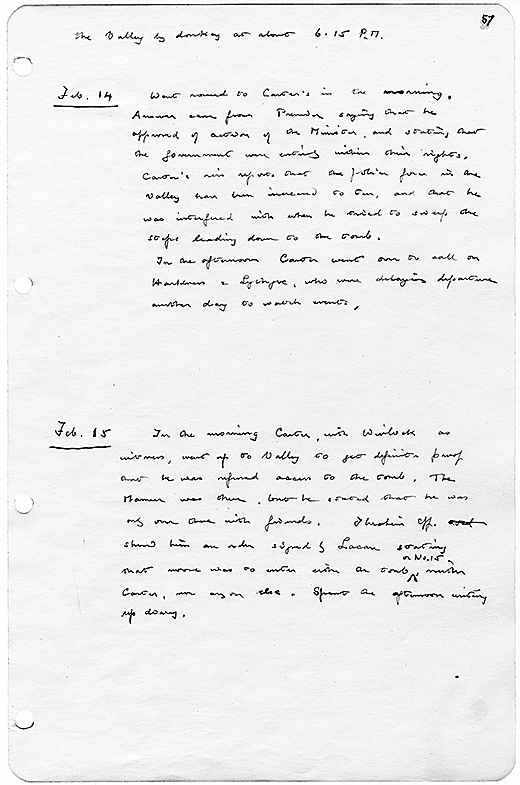 57
the Valley by donkey at about 6.15 P.M.
Feb. 14 Went round to Carter's in the morning.
Answer came from Premier saying that he
approved of action of the Minister, and stating that
the Government were entirely within their rights.
Carter's reis reports that the police force in the
Valley has been increased to ten, and that he
was interfered with when he tried to sweep the
steps leading down to the tomb.
In the afternoon Carter went over to call on
Harkness & Lythgoe, who were delaying departure
another day to watch events.
Feb. 15 In the morning Carter, with Winlock as
witness, went up to Valley to get definite proof
that he was refused access to the tomb. The
Mamur was there, but he stated that he was
only over there with friends. Ibrahim Eff.
showed him an order signed by Lacau stating
that no one was to enter either the tomb or No. 15, neither
Carter, nor anyone else. Spent the afternoon writing
up diary.